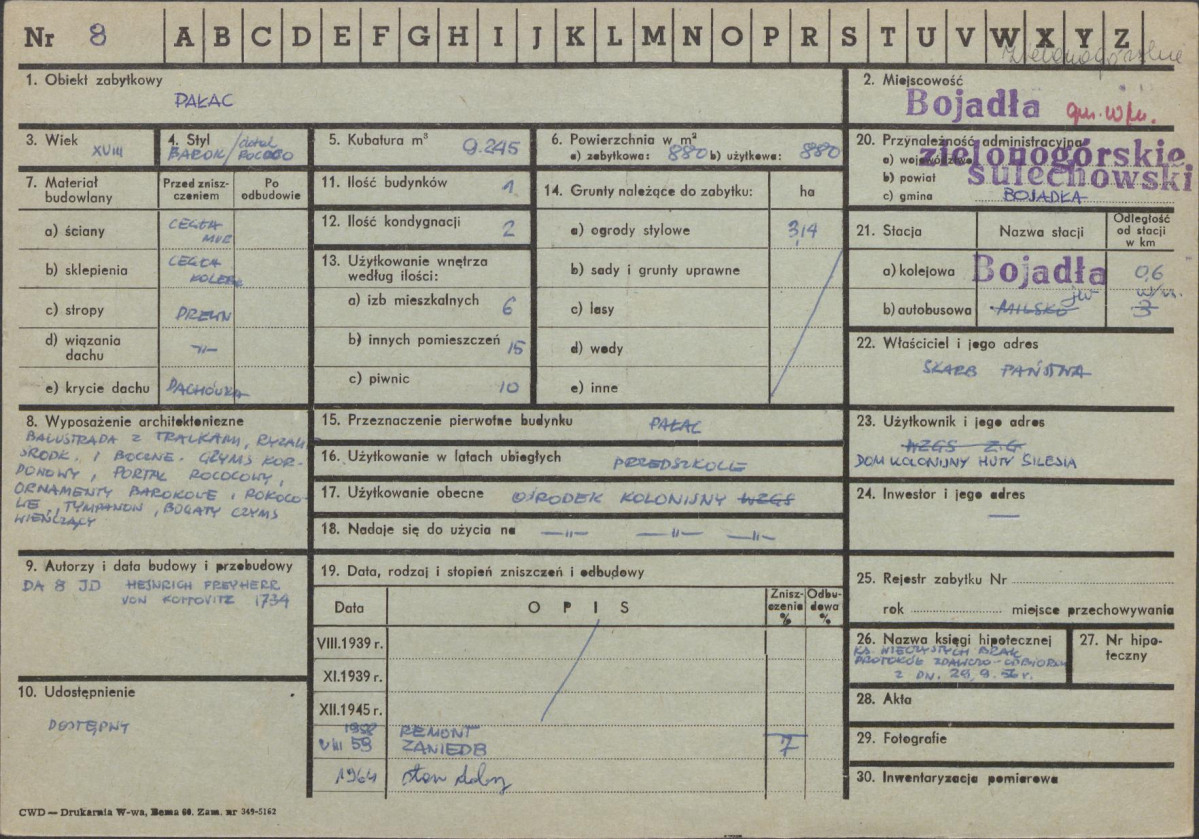 Nr 8 A B C D E F G H I J K L M N O P R S T U V W X Y Z
zielonogórskie
1. Obiekt zabytkowy
PAŁAC
2. Miejscowość
Bojadła gm. w/m.
3. Wiek XVIII
4. Styl BAROK / detal ROCOCO
5. Kubatura m³ 9.245
6. Powierzchnia w m²
a) zabytkowa: 880 b) użytkowa: 880
20. Przynależność administracyjna
a) województwo zielonogórskie
b) powiat sulechowski
c) gmina BOJADŁA
7. Materiał budowlany
Przed zniszczeniem
Po odbudowie
a) ściany CEGŁA MUR
b) sklepienia CEGŁA KOLEB
c) stropy DREWN
d) wiązania dachu —"—
e) krycie dachu DACHÓWKA
11. Ilość budynków 1
12. Ilość kondygnacji 2
13. Użytkowanie wnętrza
według ilości:
a) izb mieszkalnych 6
b) innych pomieszczeń 15
c) piwnic 10
14. Grunty należące do zabytku: ha
a) ogrody stylowe 3,4
b) sady i grunty uprawne
c) lasy
d) wody
e) inne
21. Stacja Nazwa stacji Odległość od stacji w km
a) kolejowa Bojadła 0,6
b) autobusowa MILSKO jw w/m. 3
22. Właściciel i jego adres
SKARB PAŃSTWA
8. Wyposażenie architektoniczne
BALUSTRADA Z TRALKAMI, RYZAL
ŚRODK. I BOCZNE. GZYMS KOR-
DONOWY, PORTAL ROCOCOWY,
ORNAMENTY BAROKOWE I ROKOCO-
WE, TYMPANON, BOGATY GZYMS
WIEŃCZĄCY
15. Przeznaczenie pierwotne budynku PAŁAC
16. Użytkowanie w latach ubiegłych PRZEDSZKOLE
17. Użytkowanie obecne OŚRODEK KOLONIJNY WZGS
18. Nadaje się do użycia na —"— —"— —"—
23. Użytkownik i jego adres
WZGS Z.G
DOM KOLONIJNY HUTY SILESIA
24. Inwestor i jego adres
—
9. Autorzy i data budowy i przebudowy
DA 8 JD HEINRICH FREYHERR
VON KOTTOVITZ 1734
19. Data, rodzaj i stopień zniszczeń i odbudowy
Data OPIS Zniszczenia % Odbudowa %
VIII.1939 r.
XI.1939 r.
XII.1945 r.
REMONT
VIII 59 ZANIEDB 7
1964 stan dobry
25. Rejestr zabytku Nr
rok miejsce przechowywania
26. Nazwa księgi hipotecznej
KS WIECZYSTYCH BRAK
PROTOKÓŁ ZDAWCZO-ODBIORCZ
Z DN. 28.9.56 r.
27. Nr hipoteczny
10. Udostępnienie
DOSTĘPNY
28. Akta
29. Fotografie
30. Inwentaryzacja pomiarowa
CWD — Drukarnia W-wa, Bema 60. Zam. nr 349-5162